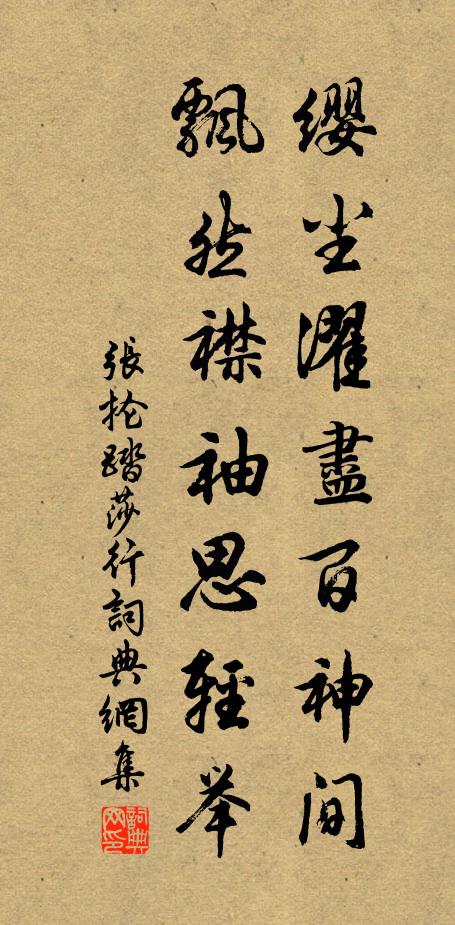 纓尘濯盡百神间
飄然襟袖思輕举
張抡踏莎行詞典網集
詞典网印